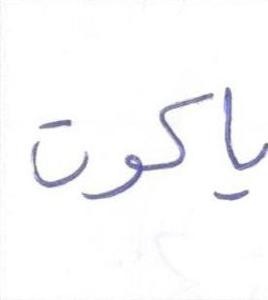 ياكوت